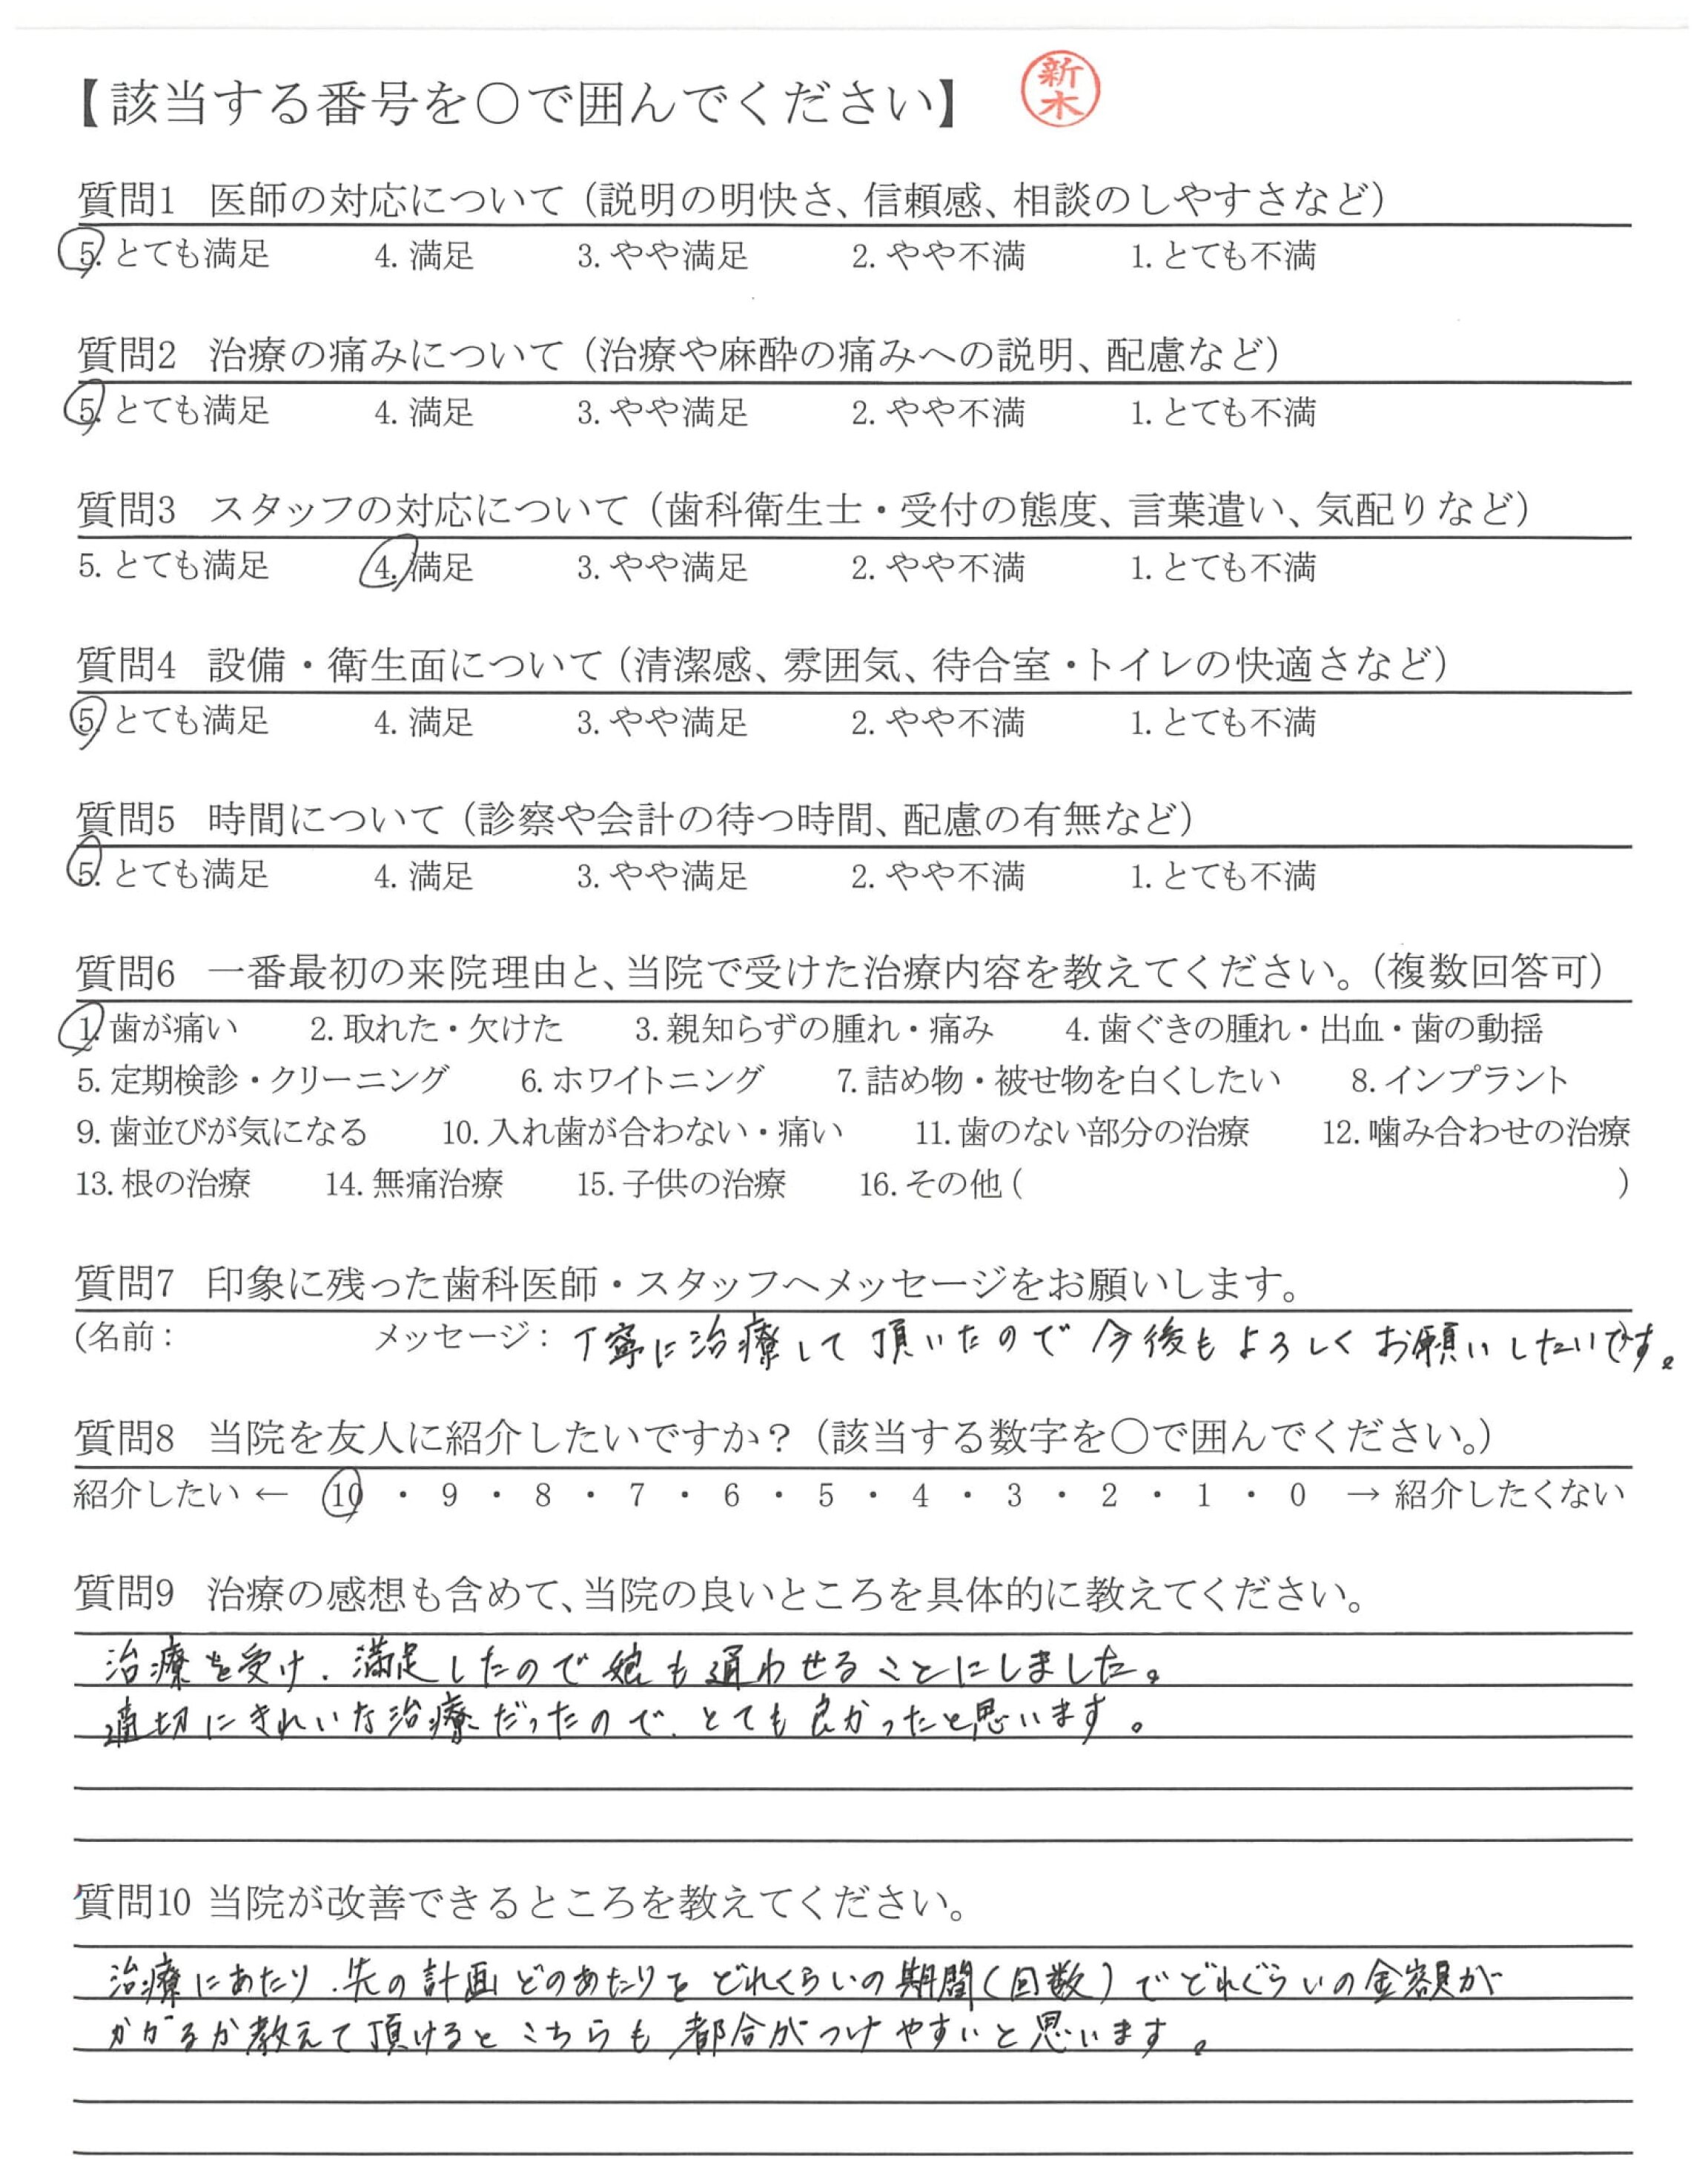 【該当する番号を〇で囲んでください】
新木
質問1 医師の対応について（説明の明快さ、信頼感、相談のしやすさなど）
5. とても満足 4. 満足 3. やや満足 2. やや不満 1. とても不満
質問2 治療の痛みについて（治療や麻酔の痛みへの説明、配慮など）
5. とても満足 4. 満足 3. やや満足 2. やや不満 1. とても不満
質問3 スタッフの対応について（歯科衛生士・受付の態度、言葉遣い、気配りなど）
5. とても満足 4. 満足 3. やや満足 2. やや不満 1. とても不満
質問4 設備・衛生面について（清潔感、雰囲気、待合室・トイレの快適さなど）
5. とても満足 4. 満足 3. やや満足 2. やや不満 1. とても不満
質問5 時間について（診察や会計の待つ時間、配慮の有無など）
5. とても満足 4. 満足 3. やや満足 2. やや不満 1. とても不満
質問6 一番最初の来院理由と、当院で受けた治療内容を教えてください。（複数回答可）
1. 歯が痛い 2. 取れた・欠けた 3. 親知らずの腫れ・痛み 4. 歯ぐきの腫れ・出血・歯の動揺
5. 定期検診・クリーニング 6. ホワイトニング 7. 詰め物・被せ物を白くしたい 8. インプラント
9. 歯並びが気になる 10. 入れ歯が合わない・痛い 11. 歯のない部分の治療 12. 噛み合わせの治療
13. 根の治療 14. 無痛治療 15. 子供の治療 16. その他（ ）
質問7 印象に残った歯科医師・スタッフへメッセージをお願いします。
（名前： メッセージ：丁寧に治療して頂いたので今後もよろしくお願いしたいです。
質問8 当院を友人に紹介したいですか？（該当する数字を〇で囲んでください。）
紹介したい ← 10 ・ 9 ・ 8 ・ 7 ・ 6 ・ 5 ・ 4 ・ 3 ・ 2 ・ 1 ・ 0 → 紹介したくない
質問9 治療の感想も含めて、当院の良いところを具体的に教えてください。
治療を受け、満足したので娘も通わせることにしました。
適切にきれいな治療だったので、とても良かったと思います。
質問10 当院が改善できるところを教えてください。
治療にあたり、先の計画どのあたりをどれくらいの期間（回数）でどれぐらいの金額が
かかるか教えて頂けるとこちらも都合がつけやすいと思います。